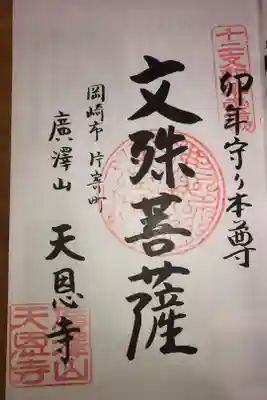 卯年守り本尊
文殊菩薩
岡崎市片寄町
廣澤山 天恩寺
廣澤山
天恩寺